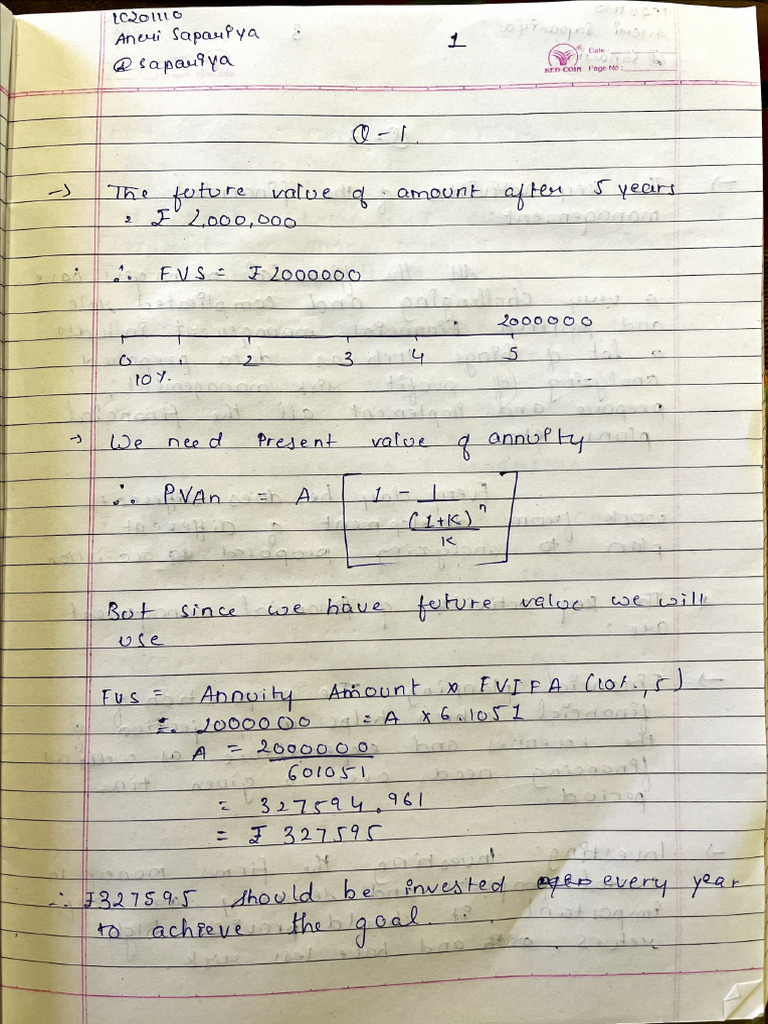 IC201110
Aneri Sapariya
@sapariya
1
RED COIN
Date
Page No :
Q - 1.
→ The future value of amount after 5 years
= ₹ 2,000,000
∴ FV5 = ₹2000000
2000000
0 1 2 3 4 5
10%
→ We need Present value of annuity
∴ PVAn = A [ 1 - 1
(1+K)ⁿ
K ]
But since we have future value we will
use
FV5 = Annuity Amount × FVIFA (10%, 5)
∴ 2000000 = A × 6.1051
A = 2000000
601051
= 327594.961
= ₹ 327595
∴ ₹327595 should be invested every year
to achieve the goal.